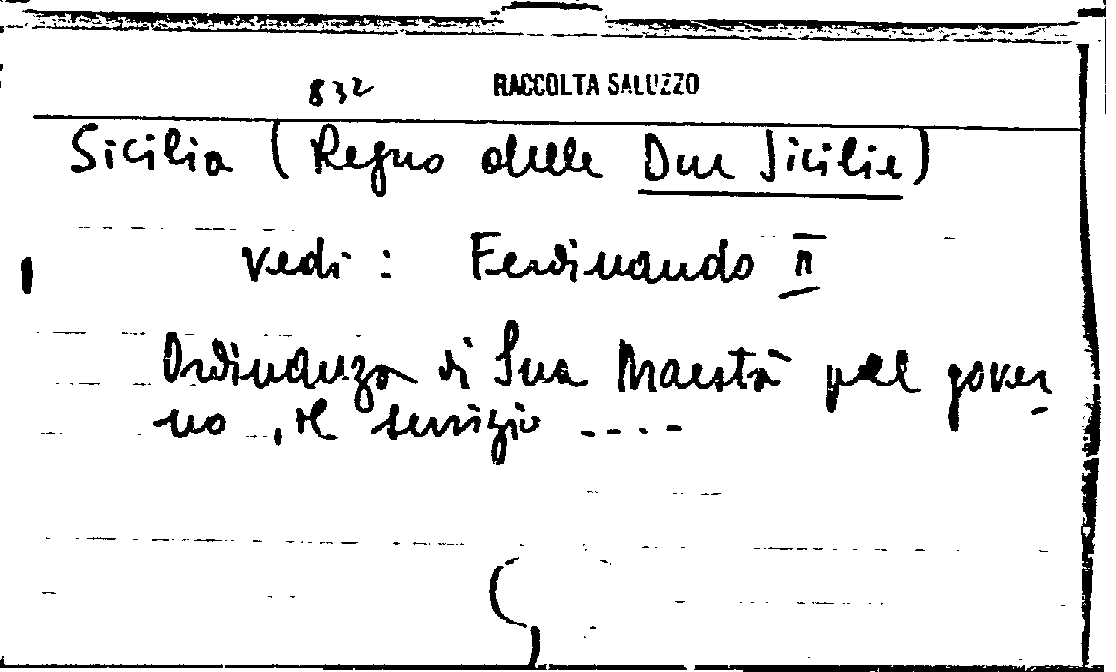 832 RACCOLTA SALUZZO
Sicilia (Regno delle Due Sicilie)
vedi: Ferdinando II
Ordinanza di Sua Maestà pel gover-
no, il servizio ----